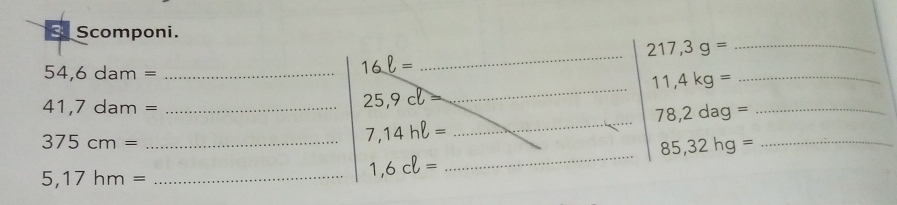 3 Scomponi.
54,6 dam = ....................
41,7 dam = ....................
375 cm = ....................
5,17 hm = ....................
16 ℓ = ....................
25,9 cℓ = ....................
7,14 hℓ = ....................
1,6 cℓ = ....................
217,3 g = ....................
11,4 kg = ....................
78,2 dag = ....................
85,32 hg = ....................